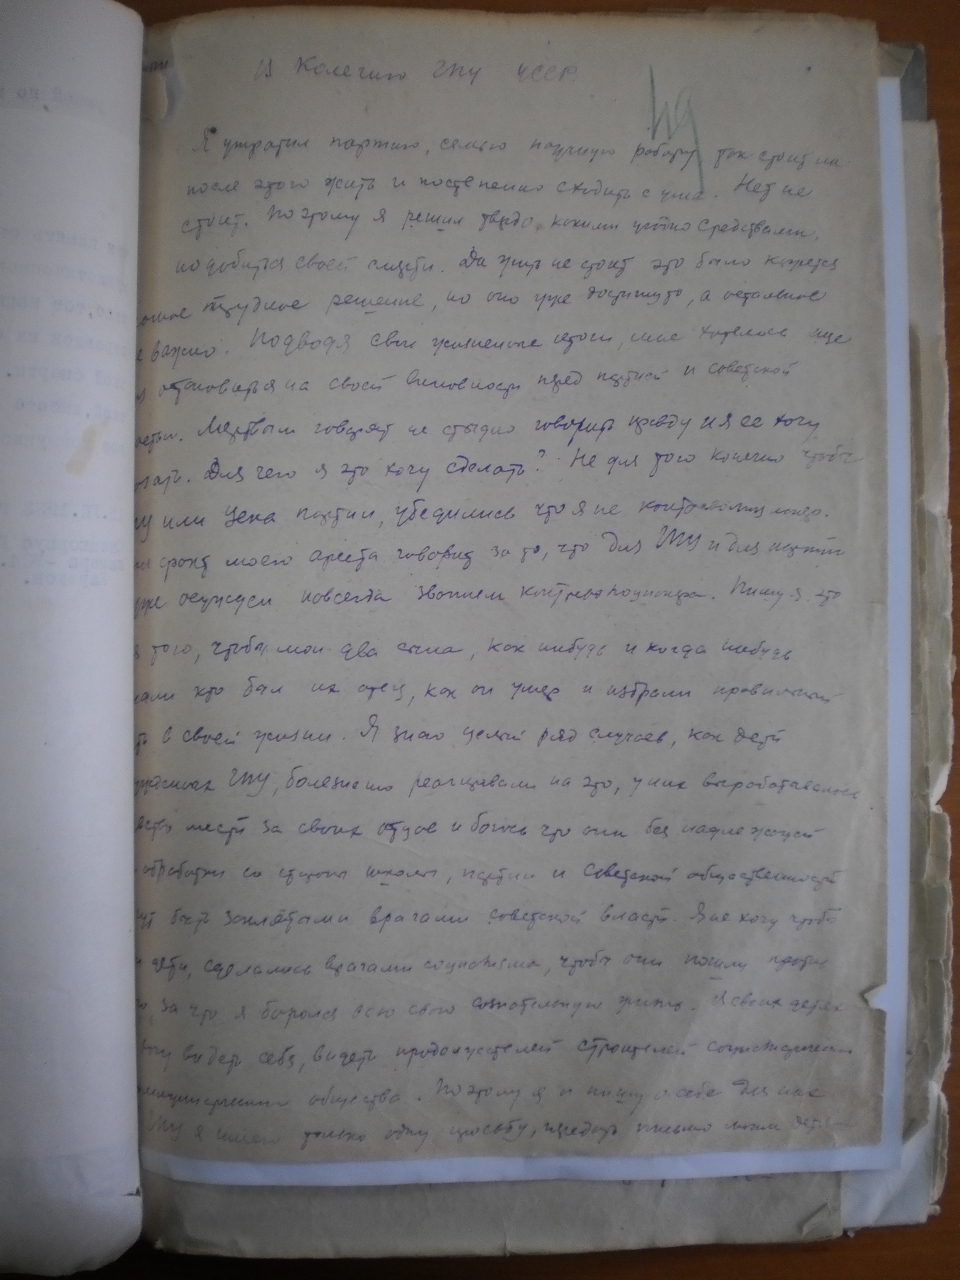 В Колегию ГПУ УССР
49
Я утратил партию, семью научную работу так стоит ли
после этого жить и постепенно сходить с ума. Нет не
стоит. Поэтому я решил твердо, какими угодно средствами,
но добиться своей смерти. Да жить не стоит это было кажется
самое трудное решение, но оно уже достигнуто, а остальное
не важно. Подводя свои жизненные итоги, мне хотелось еще
остановиться на своей виновности перед партией и советской
властью. Мертвым говорят не стыдно говорить правду и я ее хочу
сказать. Для чего я это хочу сделать? Не для того конечно чтобы
или Цека партии, убедились что я не контрреволюционер.
моего ареста говорит за то, что для ГПУ и для партии
уже осужден навсегда званием контрреволюционера. Пишу я это
для того, чтобы мои два сына, как нибудь и когда нибудь
узнали кто был их отец, как он умер и избрали правильный
путь в своей жизни. Я знаю целый ряд случаев, как дети
осужденных ГПУ, болезненно реагировали на это, у них вырабатывалось
чувство мести за своих отцов и боюсь что они без надлежащей
обработки со стороны школы, партии и Советской общественности
могут быть заклятыми врагами советской власти. Я не хочу чтобы
мои дети, сделались врагами социализма, чтобы они пошли против
того, за что я боролся всю свою сознательную жизнь. В своих детях
я хочу видеть себя, видеть продолжателей строителей социалистического
коммунистического общества. Поэтому я и пишу о себе для них
ГПУ я имею только одну просьбу, передать письмо моим детям